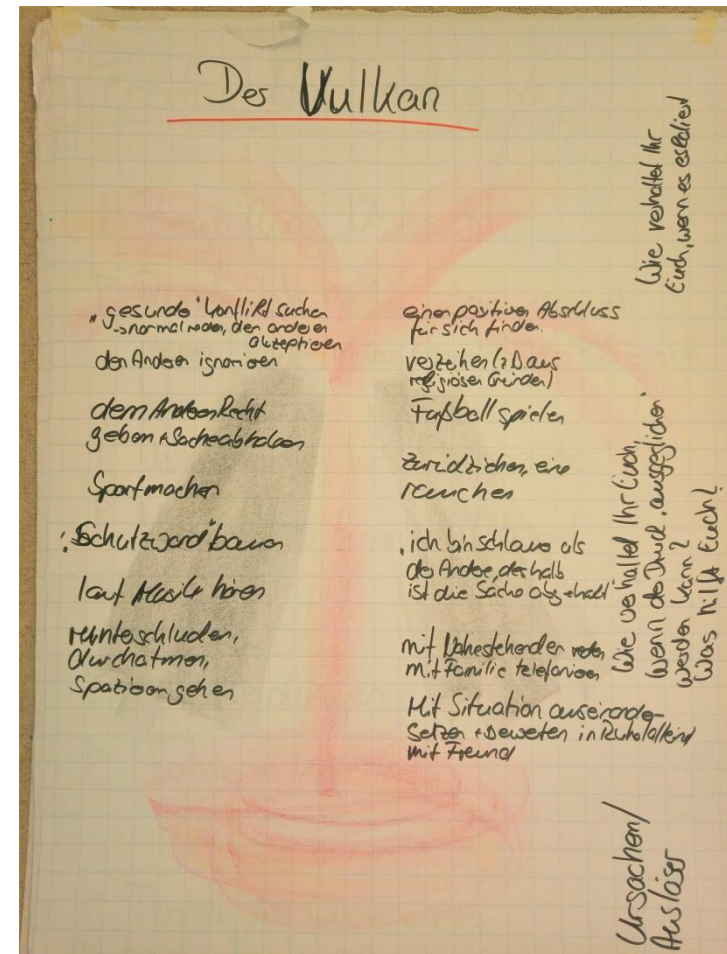 Der Vulkan
"gesunde" Konflikt suchen
→ normal reden, den anderen
akzeptieren
den Anderen ignorieren
dem Anderen Recht
geben + Sache abhaken
Sport machen
"Schutzwand" bauen
laut Musik hören
runterschlucken,
durchatmen,
Spazieren gehen
einen positiven Abschluss
für sich finden.
verzeihen (z.B. aus
religiösen Gründen)
Fußball spielen
zurückziehen, eine
rauchen
"ich bin schlauer als
der Andere, deshalb
ist die Sache abgehakt"
mit Nahestehenden reden
mit Familie telefonieren
Mit Situation auseinander-
setzen + Bewerten in Ruhe
mit Freund
Wie verhaltet Ihr
Euch, wenn es eskaliert
Wie verhaltet Ihr Euch,
wenn der Druck "ausgeglichen"
werden kann?
Was hilft Euch?
Ursachen/
Auslöser